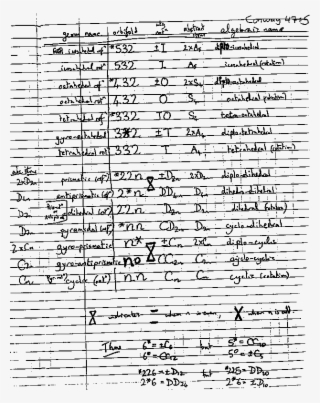 Conway 4705
geom name orbifold alg abstract algebraic name
icosahedral ref *532 ±I 2×A5 diplo-icosahedral
icosahedral rot 532 I A5 icosahedral (rotation)
octahedral ref *432 ±O 2×S4 diplo-octahedral
octahedral rot 432 O S4 octahedral (rotation)
tetrahedral ref *332 TO S4 tetra-octahedral
gyro-octahedral 3*2 ±T 2×A4 diplo-tetrahedral
tetrahedral rot 332 T A4 tetrahedral (rotation)
prismatic *22n ±D2n 2×D2n diplo-dihedral
D4n antiprismatic 2*n DD4n D4n dihedro-dihedral
D2n dihedral 22n D2n D2n dihedral (rotation)
D2n pyramidal *nn CD2n D2n cyclo-dihedral
2×Cn gyro-prismatic n* ±Cn 2×Cn diplo-cyclic
C2n gyro-antiprismatic n° CC2n C2n cyclo-cyclic
Cn cyclic nn Cn Cn cyclic (rotation)
indicates = when n is even, X when n is odd.
Thus 6* = ±C6 but 5* = CC10
6° = CC12 5° = ±C5
*226 = ±D12 but *225 = DD20
2*6 = DD24